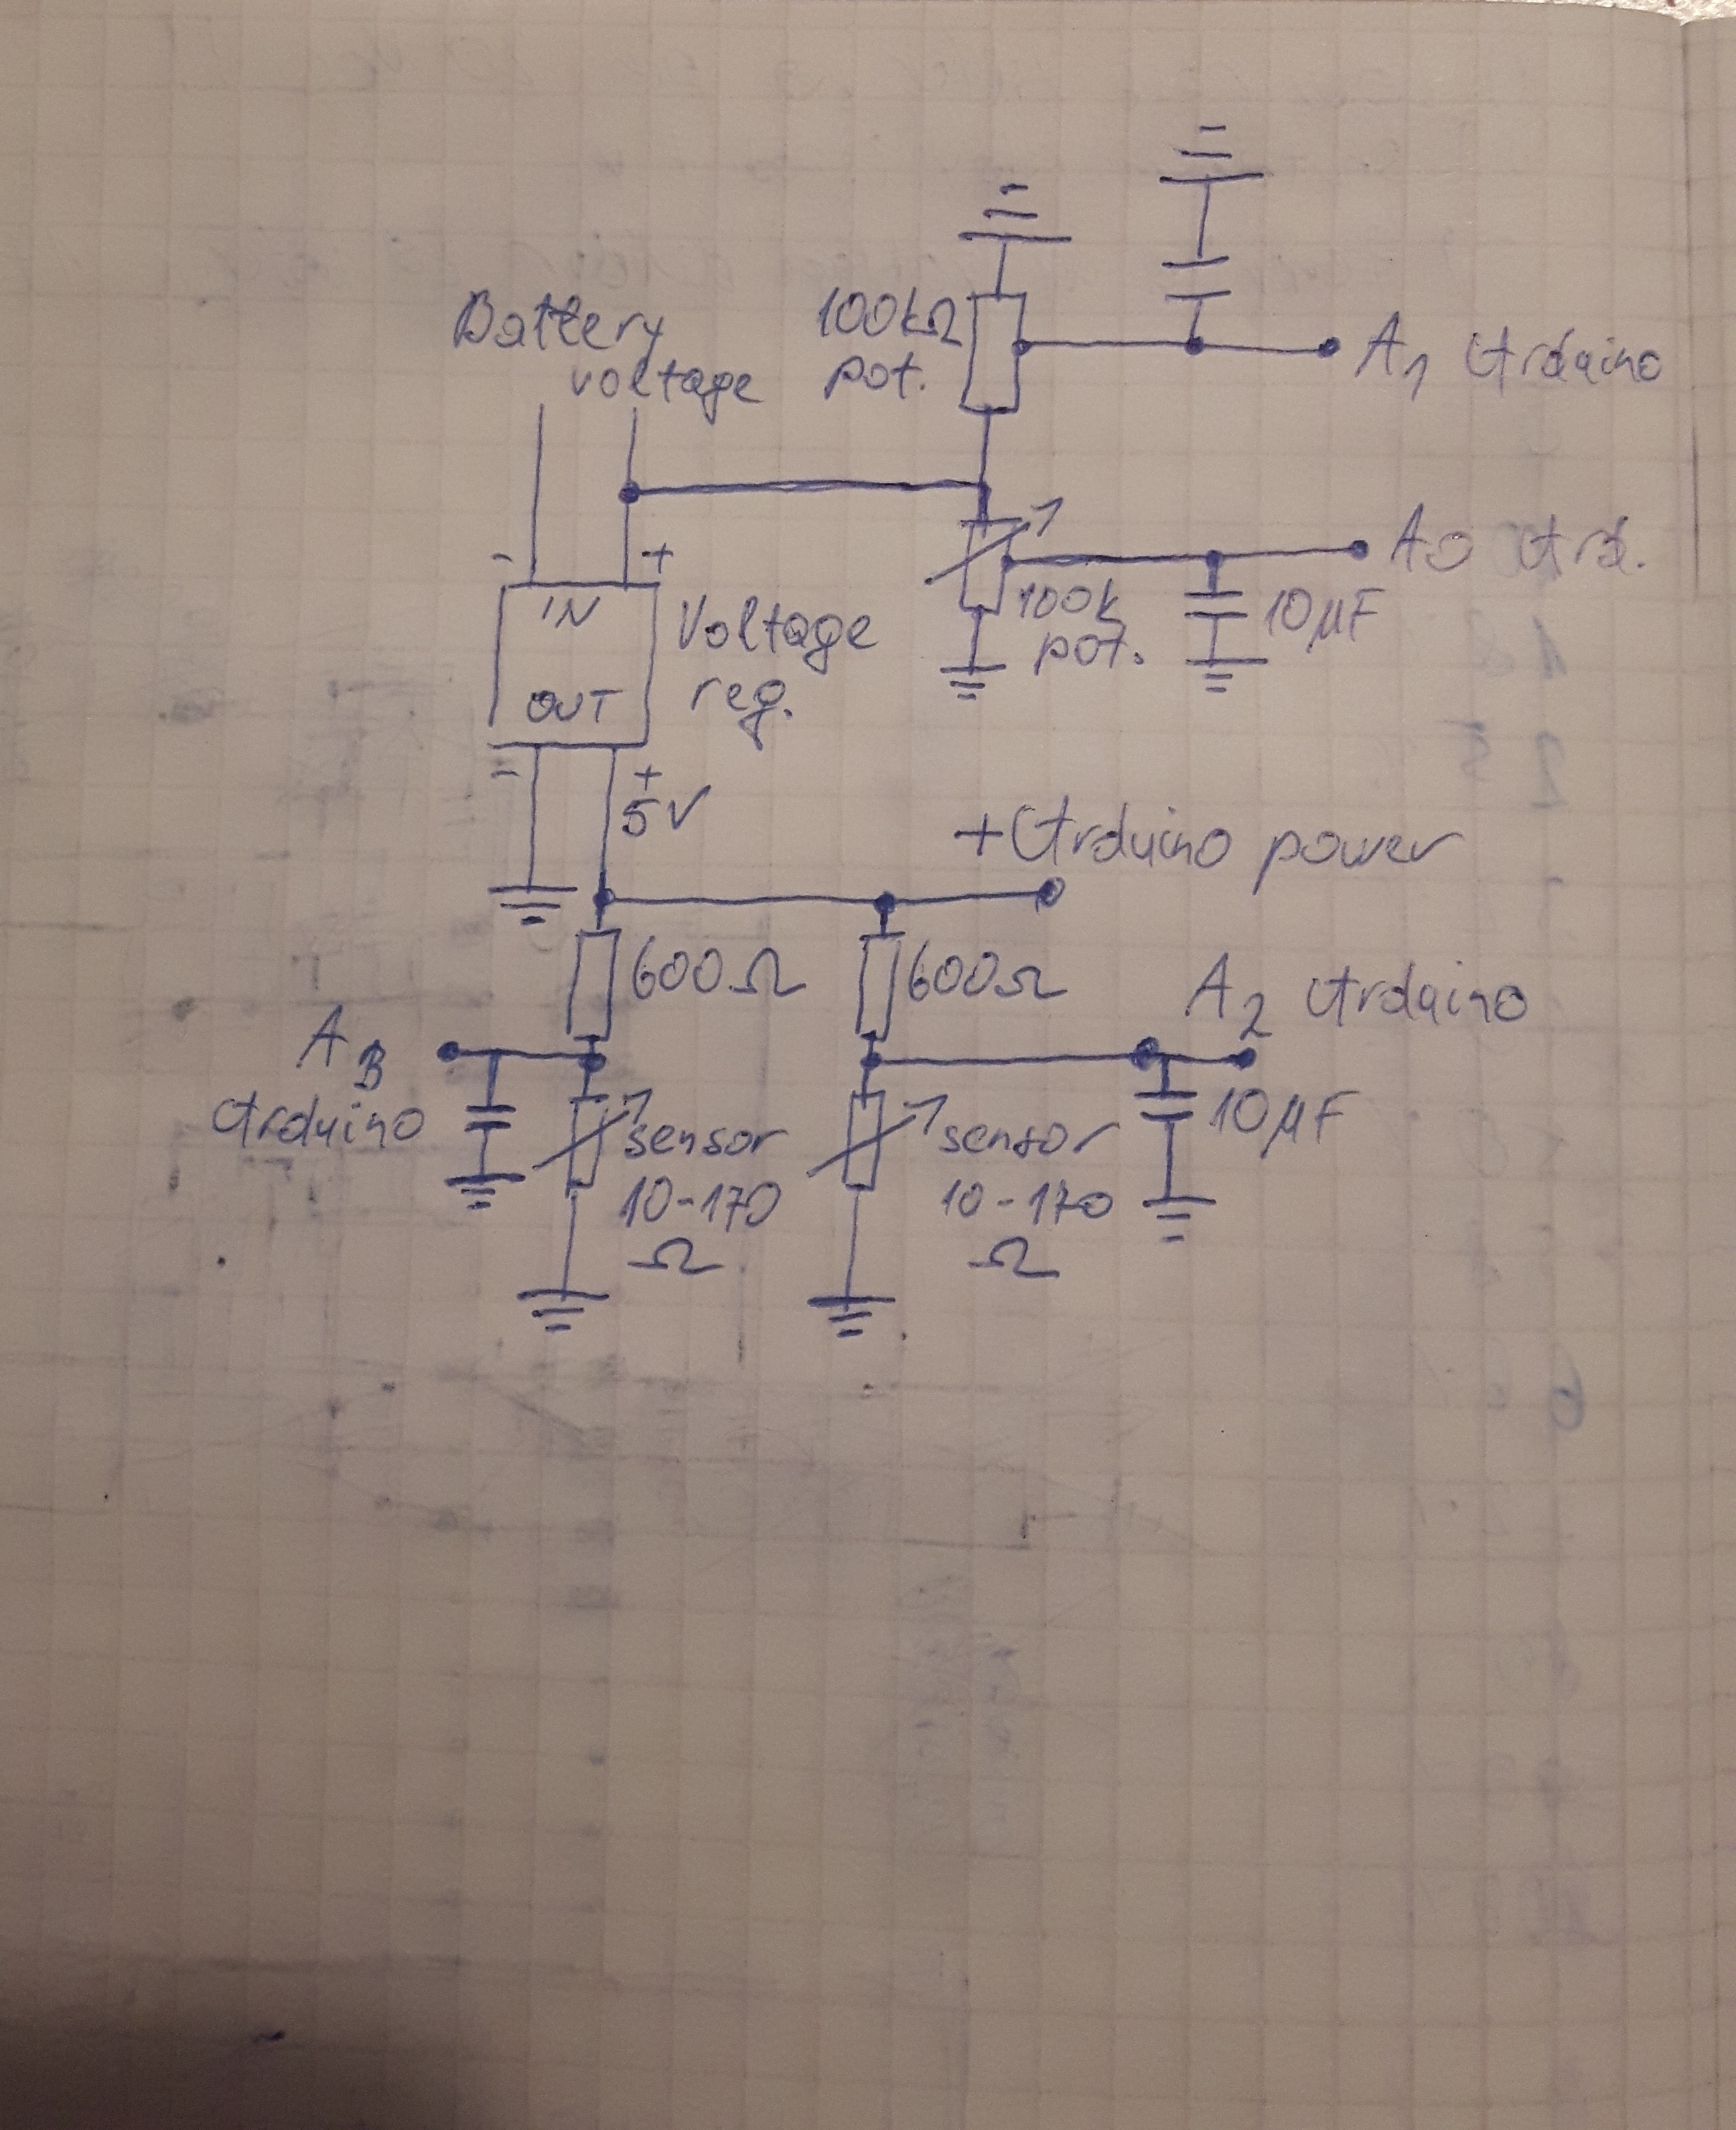 Battery
voltage
100kΩ
pot.
A1 Arduino
- +
IN
Voltage
reg.
OUT
A0 Ard.
100k
pot.
10µF
- +
5V
+Arduino power
600Ω
600Ω
A2 Arduino
A3
Arduino
sensor
10-170
Ω
sensor
10-170
Ω
10µF